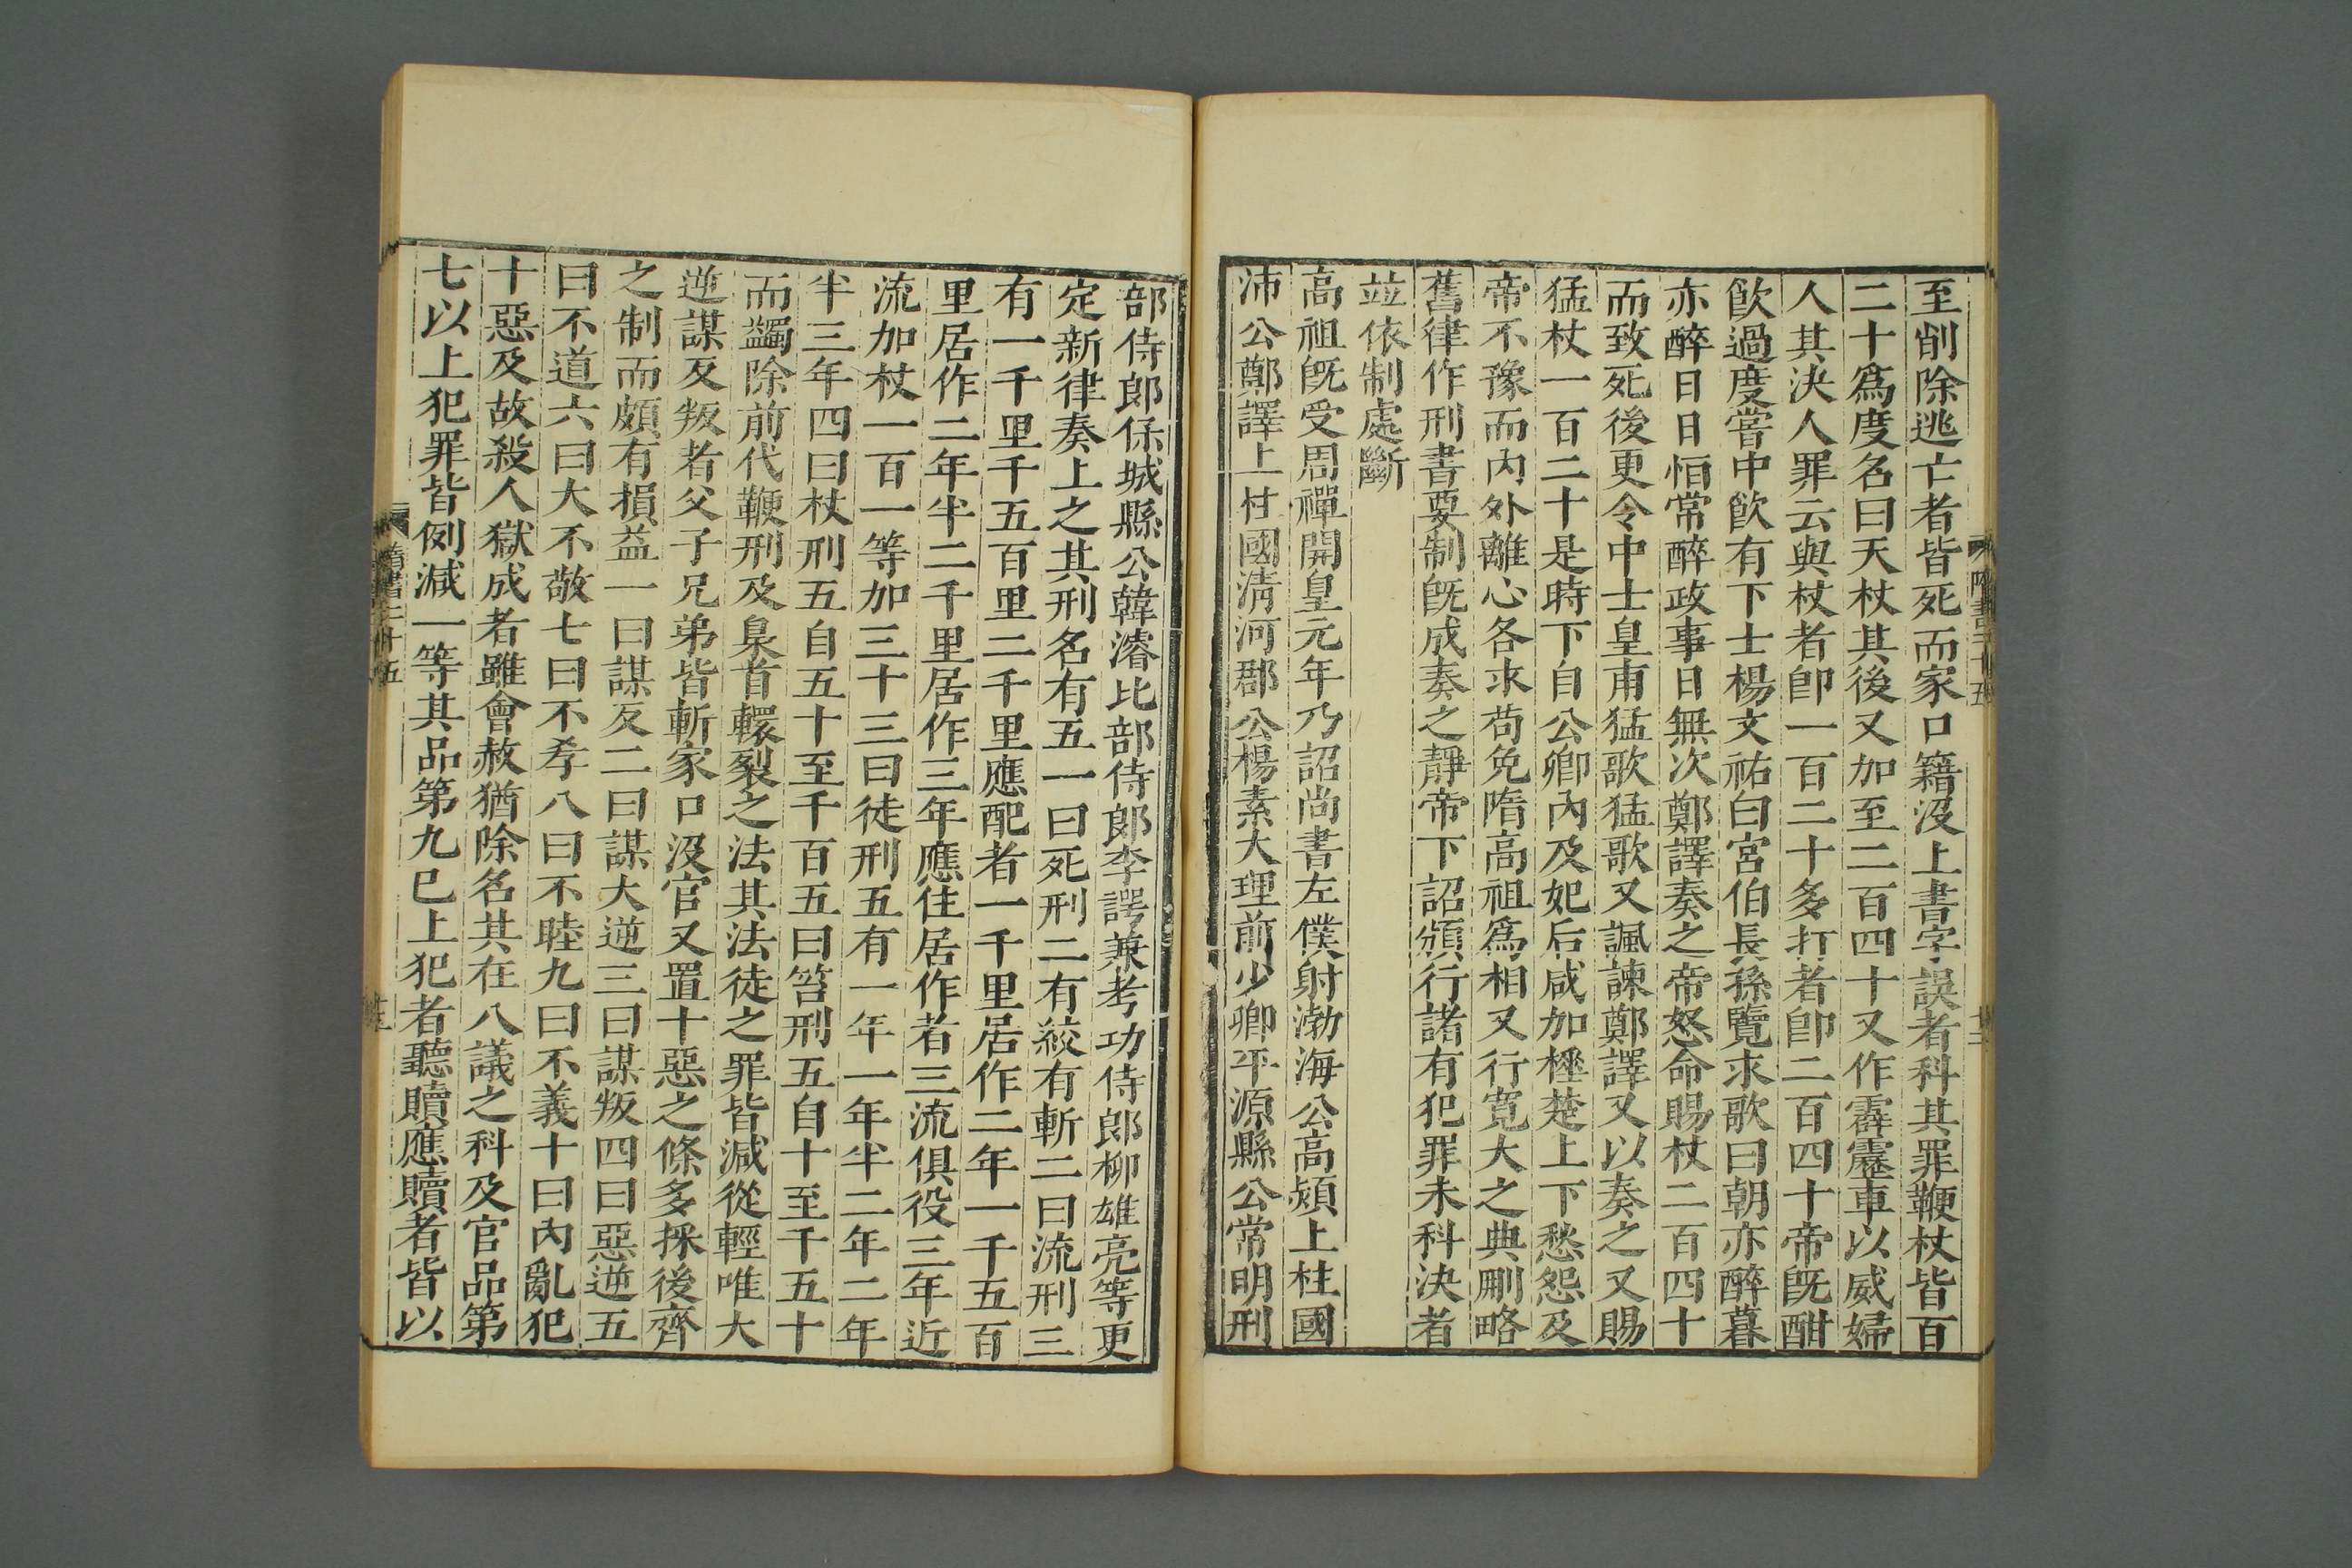 至削除逃亡者皆死而家口籍沒上書字誤者科其罪鞭杖皆百
二十爲度名曰天杖其後又加至二百四十又作霹靂車以威婦
人其決人罪云與杖者卽一百二十多打者卽二百四十帝旣酣
飮過度嘗中飮有下士楊文祐白宮伯長孫覽求歌曰朝亦醉暮
亦醉日日恒常醉政事日無次鄭譯奏之帝怒命賜杖二百四十
而致死後更令中士皇甫猛歌猛歌又諷諫鄭譯又以奏之又賜
猛杖一百二十是時下自公卿內及妃后咸加棰楚上下愁怨及
帝不豫而內外離心各求苟免隋高祖爲相又行寬大之典刪略
舊律作刑書要制旣成奏之靜帝下詔頒行諸有犯罪未科決者
竝依制處斷
高祖旣受周禪開皇元年乃詔尚書左僕射渤海公高熲上柱國
沛公鄭譯上柱國淸河郡公楊素大理前少卿平源縣公常明刑
部侍郞保城縣公韓濬比部侍郞李諤兼考功侍郞柳雄亮等更
定新律奏上之其刑名有五一曰死刑二有絞有斬二曰流刑三
有一千里千五百里二千里應配者一千里居作二年一千五百
里居作二年半二千里居作三年應住居作者三流俱役三年近
流加杖一百一等加三十三曰徒刑五有一年一年半二年二年
半三年四曰杖刑五自五十至千百五曰笞刑五自十至千五十
而蠲除前代鞭刑及梟首轘裂之法其法徒之罪皆減從輕唯大
逆謀反叛者父子兄弟皆斬家口沒官又置十惡之條多採後齊
之制而頗有損益一曰謀反二曰謀大逆三曰謀叛四曰惡逆五
曰不道六曰大不敬七曰不孝八曰不睦九曰不義十曰內亂犯
十惡及故殺人獄成者雖會赦猶除名其在八議之科及官品第
七以上犯罪皆例減一等其品第九已上犯者聽贖應贖者皆以
隋書二十五